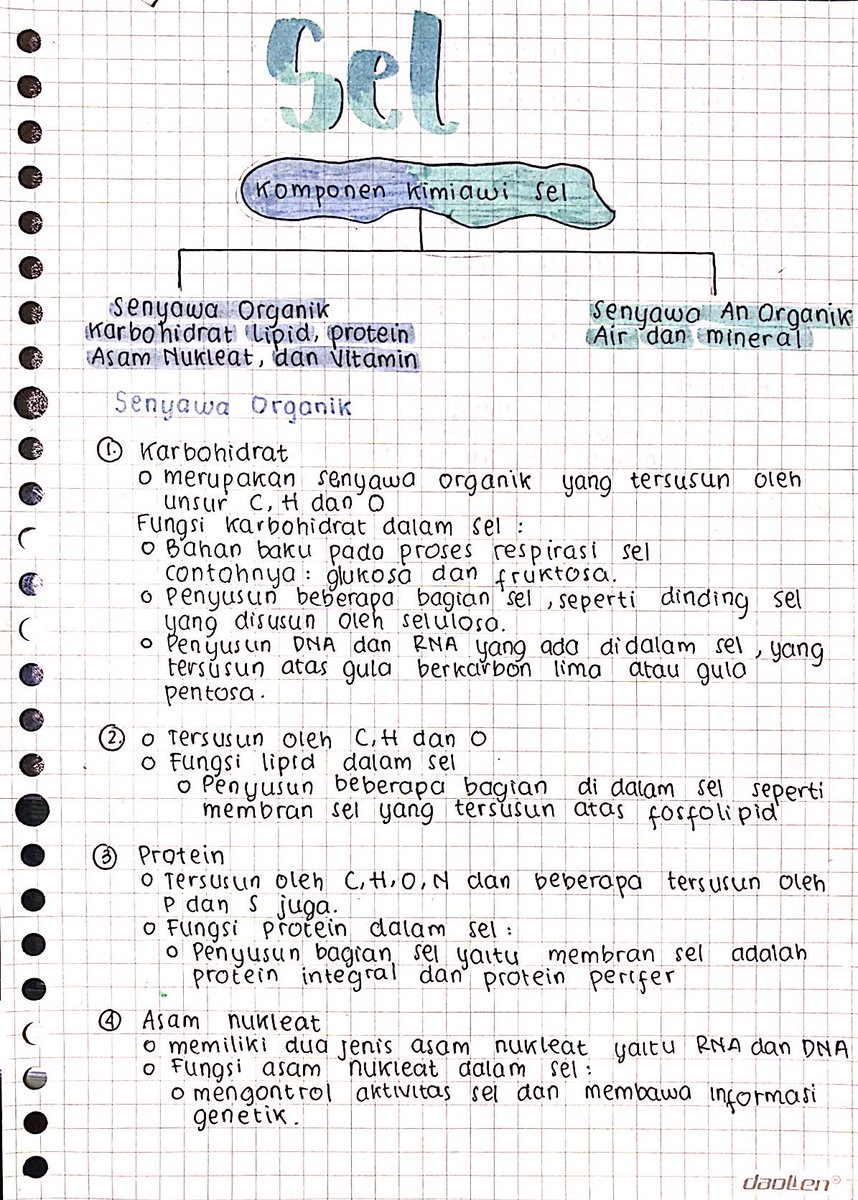 Sel
Komponen kimiawi sel
Senyawa Organik
Karbohidrat lipid, protein
Asam Nukleat, dan Vitamin
Senyawa An Organik
Air dan mineral
Senyawa Organik
1. Karbohidrat
o merupakan senyawa organik yang tersusun oleh
unsur C, H dan O
Fungsi karbohidrat dalam sel :
o Bahan baku pada proses respirasi sel
contohnya : glukosa dan fruktosa.
o Penyusun beberapa bagian sel, seperti dinding sel
yang disusun oleh selulosa.
o Penyusun DNA dan RNA yang ada didalam sel, yang
tersusun atas gula berkarbon lima atau gula
pentosa.
2. o Tersusun oleh C, H dan O
o Fungsi lipid dalam sel
o Penyusun beberapa bagian di dalam sel seperti
membran sel yang tersusun atas fosfolipid
3 Protein
o Tersusun oleh C, H, O, N dan beberapa tersusun oleh
P dan S juga.
o Fungsi protein dalam sel :
o Penyusun bagian sel yaitu membran sel adalah
protein integral dan protein perifer
4 Asam nukleat
o memiliki dua jenis asam nukleat yaitu RNA dan DNA
o Fungsi asam nukleat dalam sel :
o mengontrol aktivitas sel dan membawa informasi
genetik.
daollen